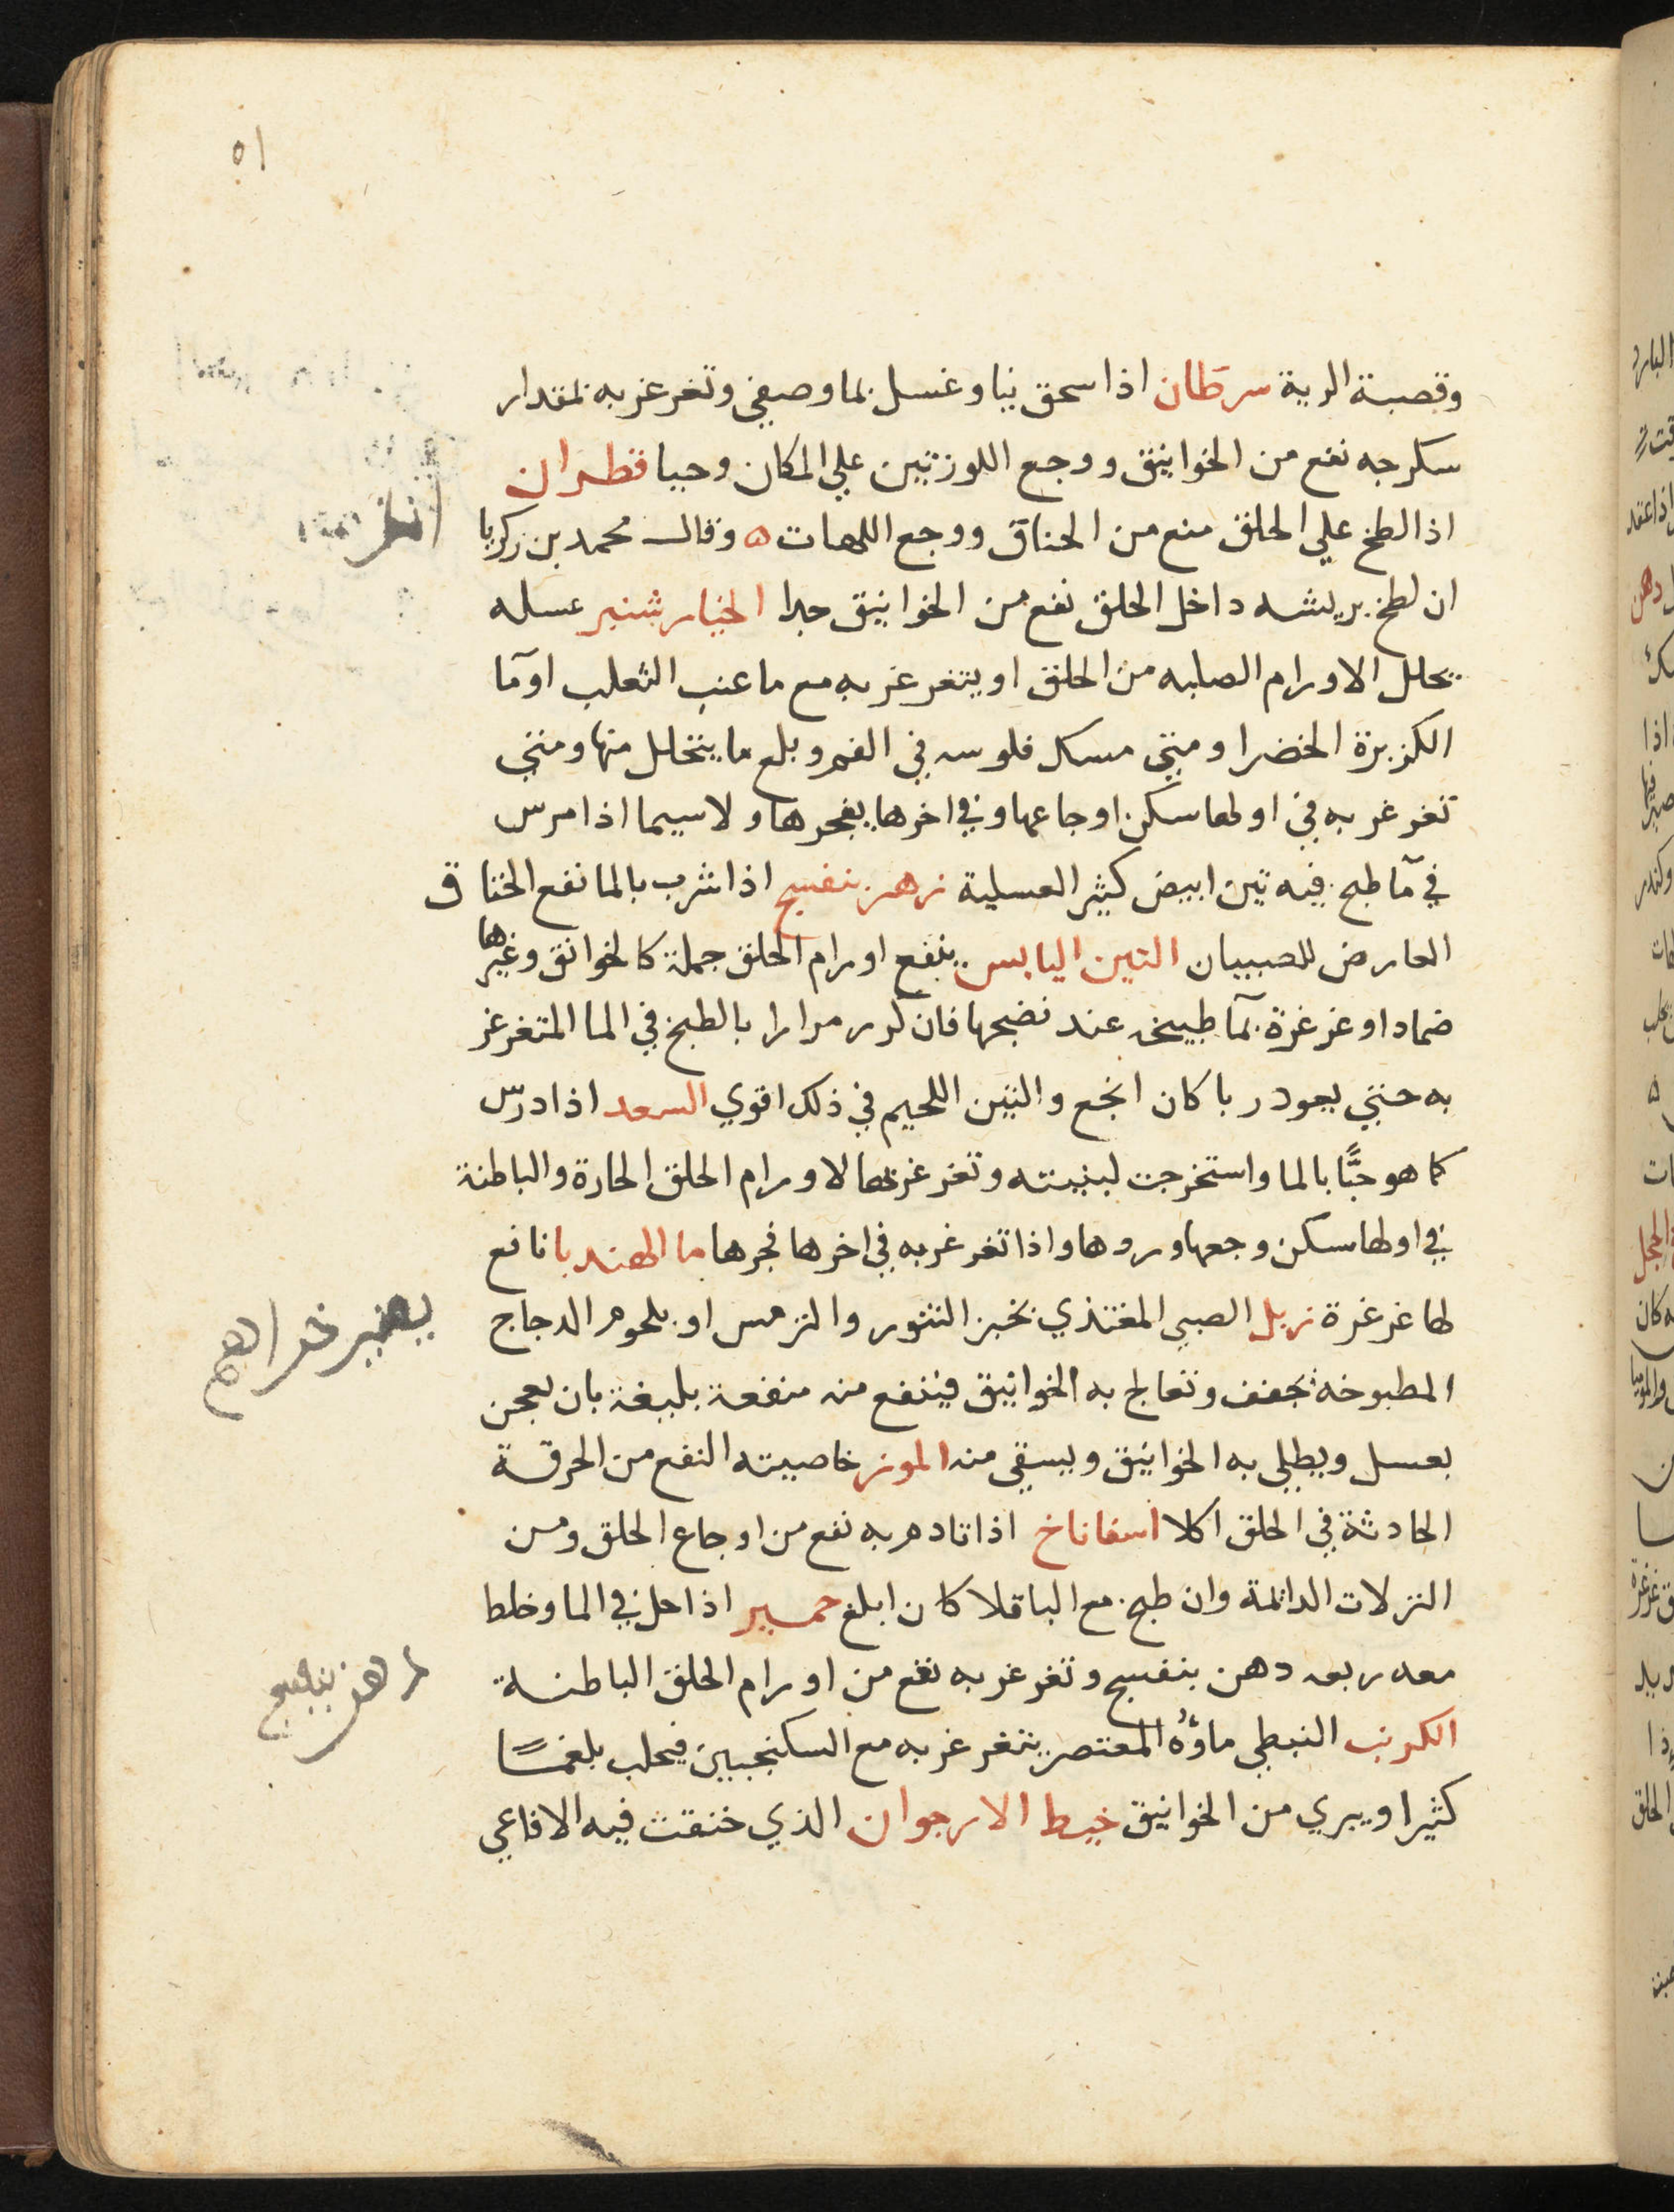 ٥١
وقصبة الرية سرطان اذا سحق نيا وغسل بما وصفي وتغرغر به بمقدار
سكرجه نفع من الخوانيق ووجع اللوزتين علي المكان وحيا قطران
اذا لطخ علي الحلق منع من الخناق ووجع اللهات ه وقال محمد بن زكريا
ان لطخ بريشه داخل الحلق نفع من الخوانيق جدا الخيارشنبر عسله
يحلل الاورام الصلبه من الحلق او يتغرغر به مع ما عنب الثعلب او مآ
الكزبزة الخضرا ومتي مسك فلوسه في الفم وبلع ما يتحلل منها ومتي
تغرغر به في اولها سكن اوجاعها وفي اخرها يفجرها ولا سيما اذا مرس
في مآ طبخ فيه تين ابيض كثير العسلية زهر بنفسج اذا شرب بالما نفع الخناق
العارض للصبيان التين اليابس ينفع اورام الحلق جملة كالخوانق وغيرها
ضمادا وغرغرة بمآ طبيخه عند نضجها فان كرر مرارا بالطبخ في الما المتغرغر
به حتي يعود ربا كان انجع والتين اللحيم في ذلك اقوي السعد اذا درس
كما هو حبًّا بالما واستخرجت لبنيته وتغرغر بها لاورام الحلق الحارة والباطنة
في اولها سكن وجعها وردها واذا تغرغر به في اخرها فجرها ما الهندبا نافع
لها غرغرة زبل الصبي المغتذي بخبز التنور والترمس او بلحوم الدجاج
المطبوخه يجفف وتعالج به الخوانيق فينفع منه منفعة بليغة بان يعجن
بعسل ويطلي به الخوانيق ويسقي منه الموز خاصيته النفع من الحرقة
الحادثة في الحلق اكلا اسفاناخ اذا تادم به نفع من اوجاع الحلق ومن
النزلات الدائمة وان طبخ مع الباقلا كان ابلغ خمير اذا حل في الما وخلط
معه ربعه دهن بنفسج وتغرغر به نفع من اورام الحلق الباطنة
الكرنب النبطي ماؤهُ المعتصر يتغرغر به مع السكنجبين فيحلب بلغمًا
كثيرا ويبري من الخوانيق خيط الارجوان الذي خنقت فيه الافاعي